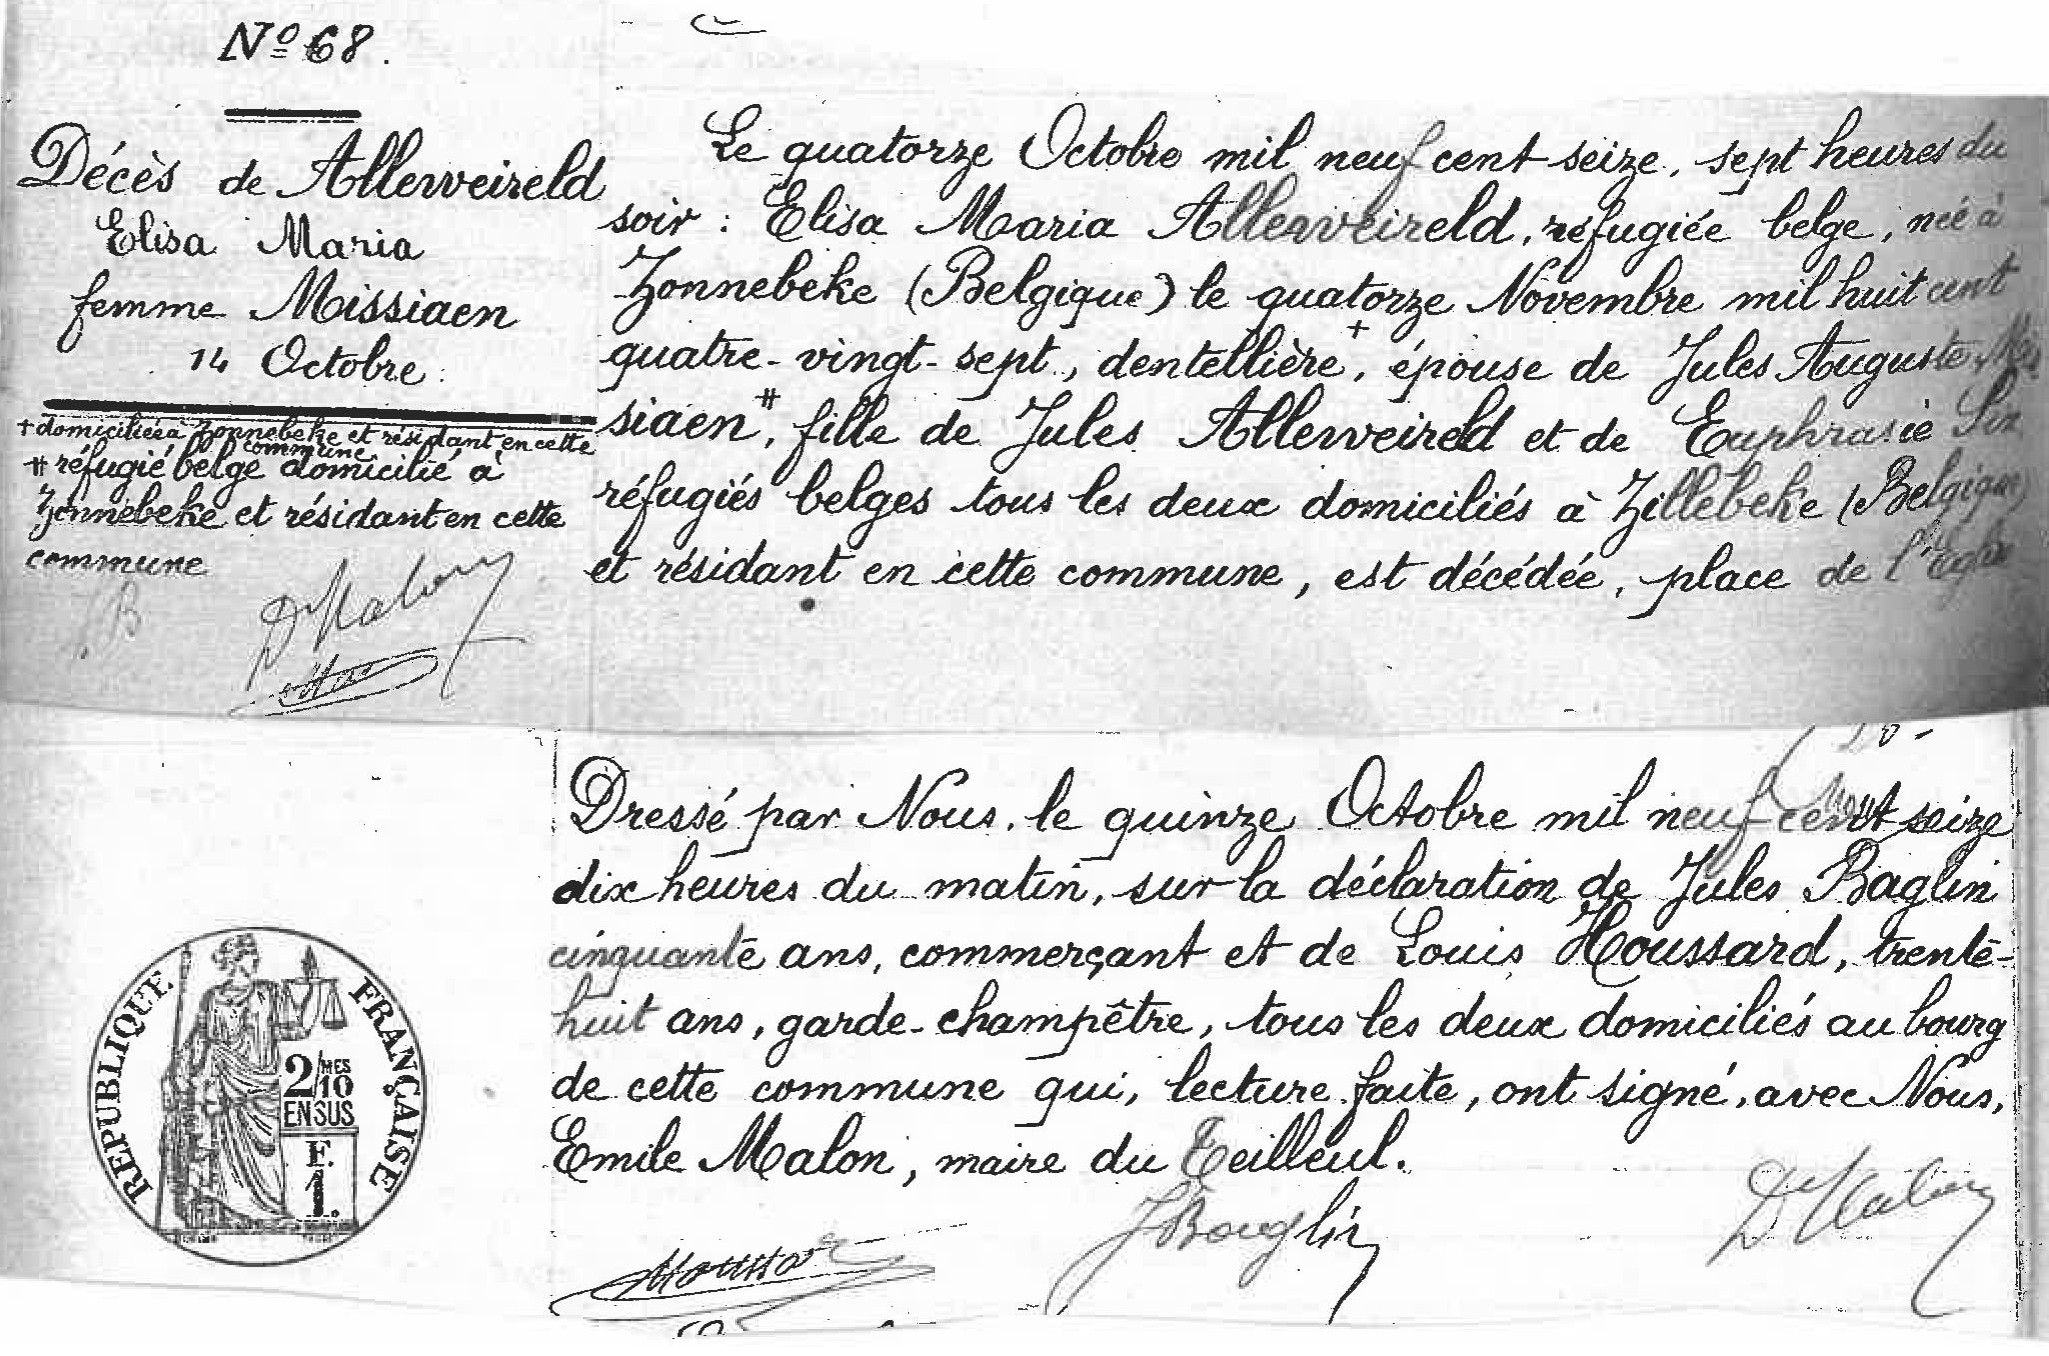 Nº 68.
Décès de Allerweireld
Elisa Maria
femme Missiaen
14 Octobre.
+ domiciliée à Zonnebeke et résidant en cette
commune.
# réfugié belge domicilié à
Zonnebeke et résidant en cette
commune
Le quatorze Octobre mil neuf cent seize, sept heures du
soir : Elisa Maria Allerweireld, réfugiée belge, née à
Zonnebeke (Belgique) le quatorze Novembre mil huit cent
quatre-vingt-sept, dentellière +, épouse de Jules Auguste Mis
siaen #, fille de Jules Allerweireld et de Euphrasie Six
réfugiés belges tous les deux domiciliés à Zillebeke (Belgique)
et résidant en cette commune, est décédée, place de l'Eglise
Dressé par Nous, le quinze Octobre mil neuf cent seize
dix heures du matin, sur la déclaration de Jules Baglin
cinquante ans, commerçant et de Louis Houssard, trente-
huit ans, garde-champêtre, tous les deux domiciliés au bourg
de cette commune qui, lecture faite, ont signé, avec Nous,
Emile Malon, maire du Teilleul.
RÉPUBLIQUE FRANÇAISE
2/MES
10
EN SUS
F.
1.